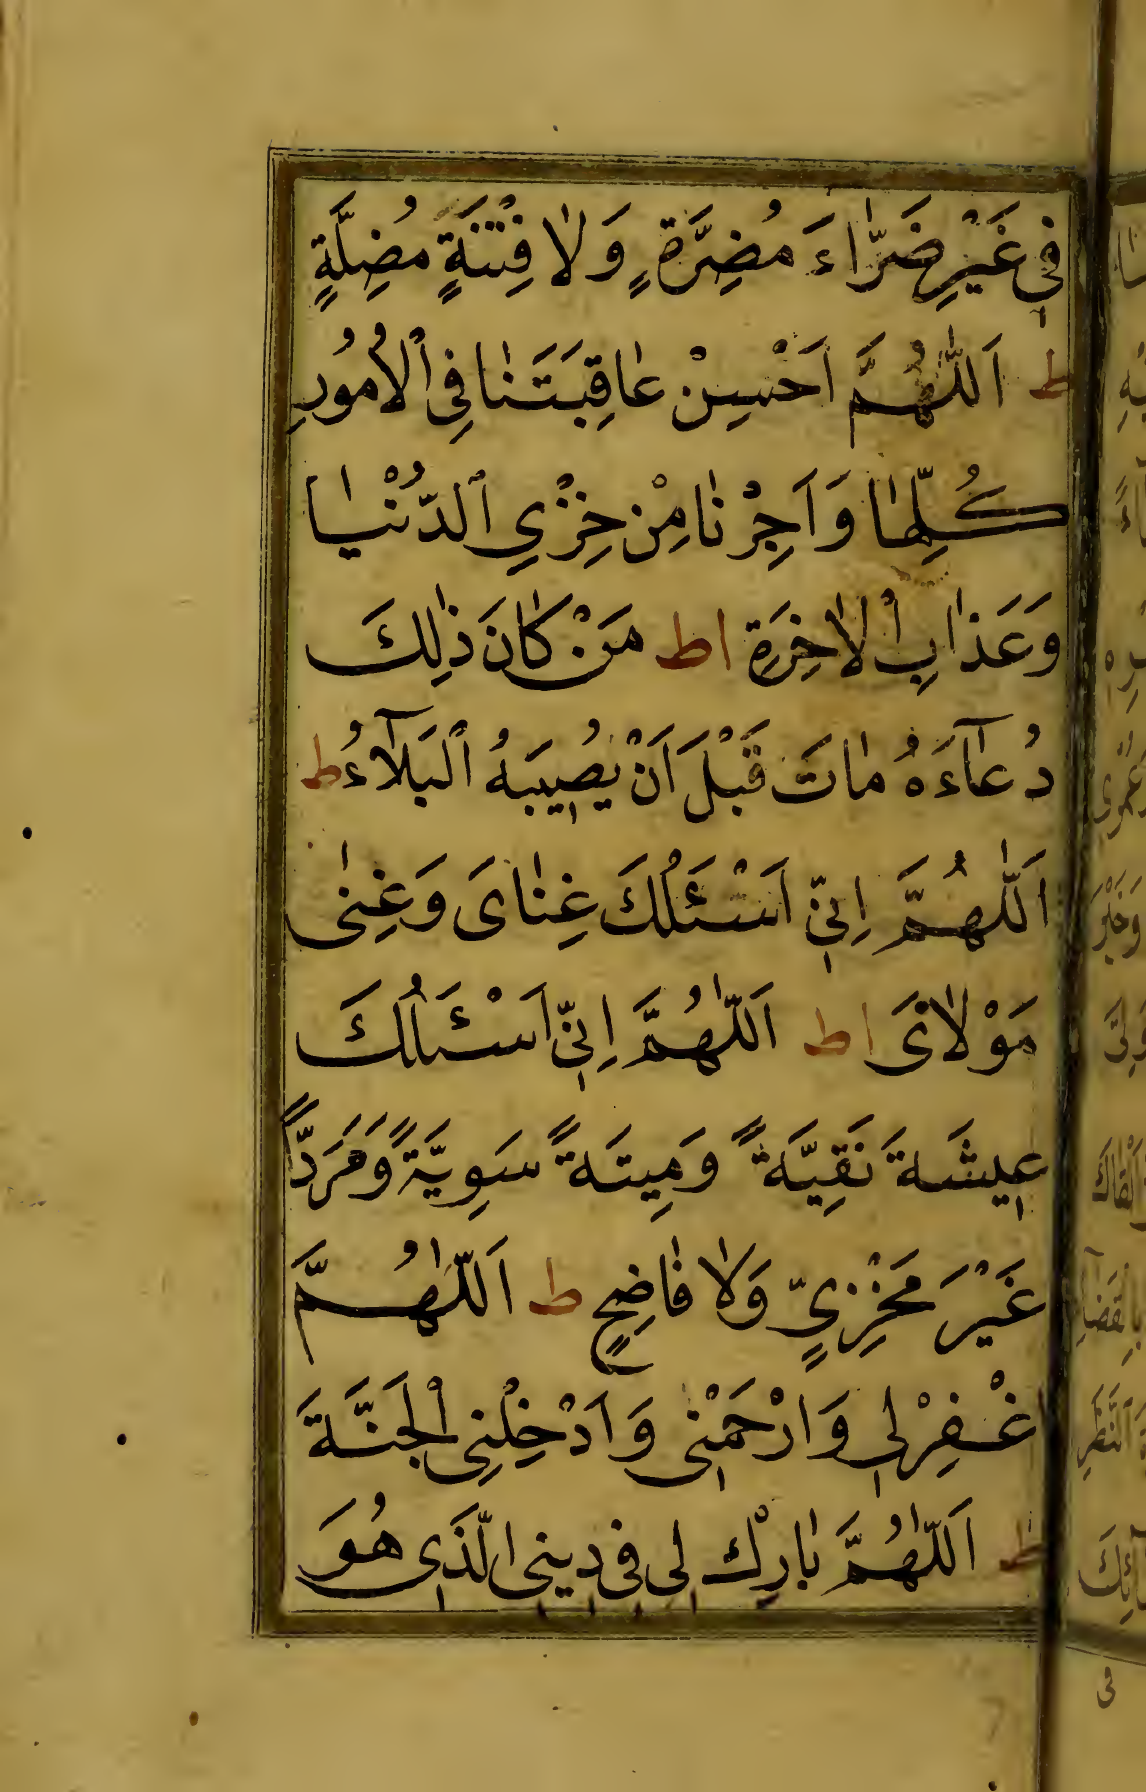 فِي غَيْرِ ضَرَّاءَ مُضِرَّةٍ وَلَا فِتْنَةٍ مُضِلَّةٍ
ط اَللّٰهُمَّ اَحْسِنْ عَاقِبَتَنَا فِي الْاُمُورِ
كُلِّهَا وَاَجِرْنَا مِنْ خِزْيِ الدُّنْيَا
وَعَذَابِ الْاٰخِرَةِ اط مَنْ كَانَ ذٰلِكَ
دُعَآءَهُ مَاتَ قَبْلَ اَنْ يُصِيبَهُ الْبَلَآءُ ط
اَللّٰهُمَّ اِنِّي اَسْئَلُكَ غِنَاىَ وَغِنٰى
مَوْلَاىَ اط اَللّٰهُمَّ اِنِّي اَسْئَلُكَ
عِيشَةَ نَقِيَّةً وَمِيتَةً سَوِيَّةً وَمَرَدًّا
غَيْرَ مَخْزِيٍّ وَلَا فَاضِحٍ ط اَللّٰهُمَّ
اغْفِرْلِي وَارْحَمْنِي وَاَدْخِلْنِي الْجَنَّةَ
ط اَللّٰهُمَّ بَارِكْ لِي فِي دِينِي الَّذِي هُوَ
فى